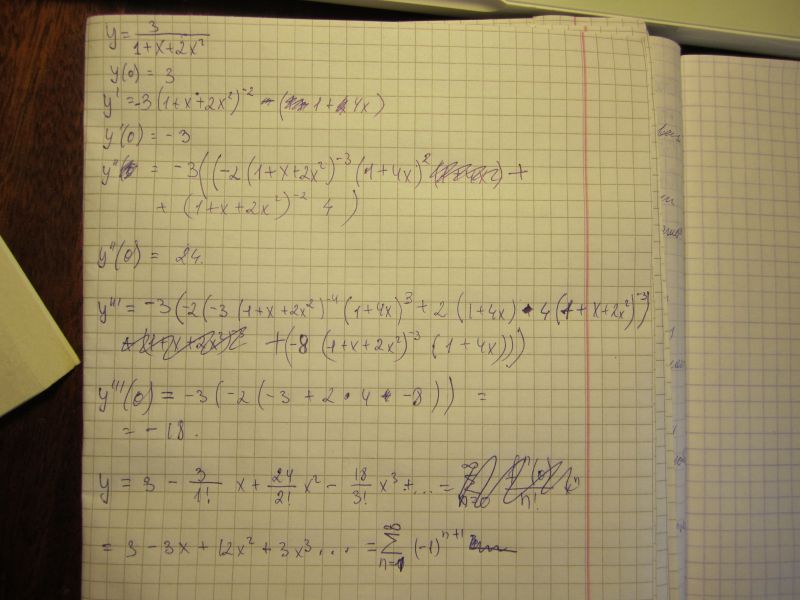 y = 3 / (1+x+2x²)
y(0) = 3
y' = -3(1+x+2x²)⁻² (1+4x)
y'(0) = -3
y'' = -3((-2(1+x+2x²)⁻³(1+4x)² +
+ (1+x+2x²)⁻² 4)
y''(0) = 24.
y''' = -3(-2(-3(1+x+2x²)⁻⁴(1+4x)³ + 2(1+4x)·4(1+x+2x²)⁻³)
+(-8(1+x+2x²)⁻³(1+4x)))
y'''(0) = -3(-2(-3+2·4 -8)) =
= -18.
y = 3 - 3/1! x + 24/2! x² - 18/3! x³ + ... =
= 3 - 3x + 12x² + 3x³ .... = ∑ (-1)ⁿ⁺¹